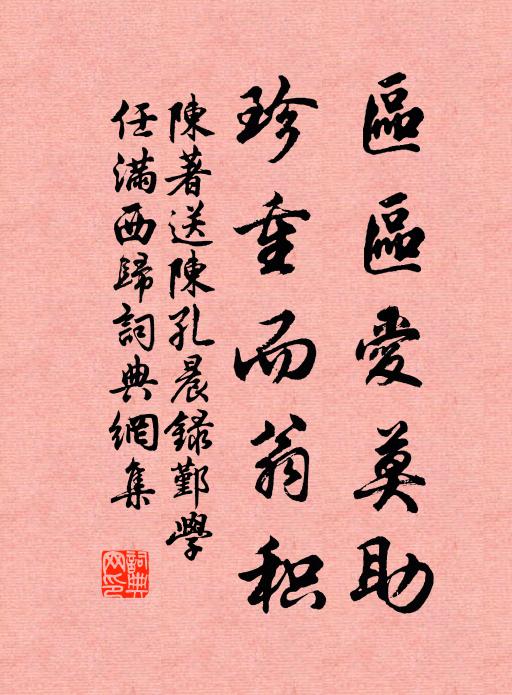 區區愛莫助
珍重而翁积
陳著送陳孔晨録鄞學
任滿西歸詞典網集
詞典网印